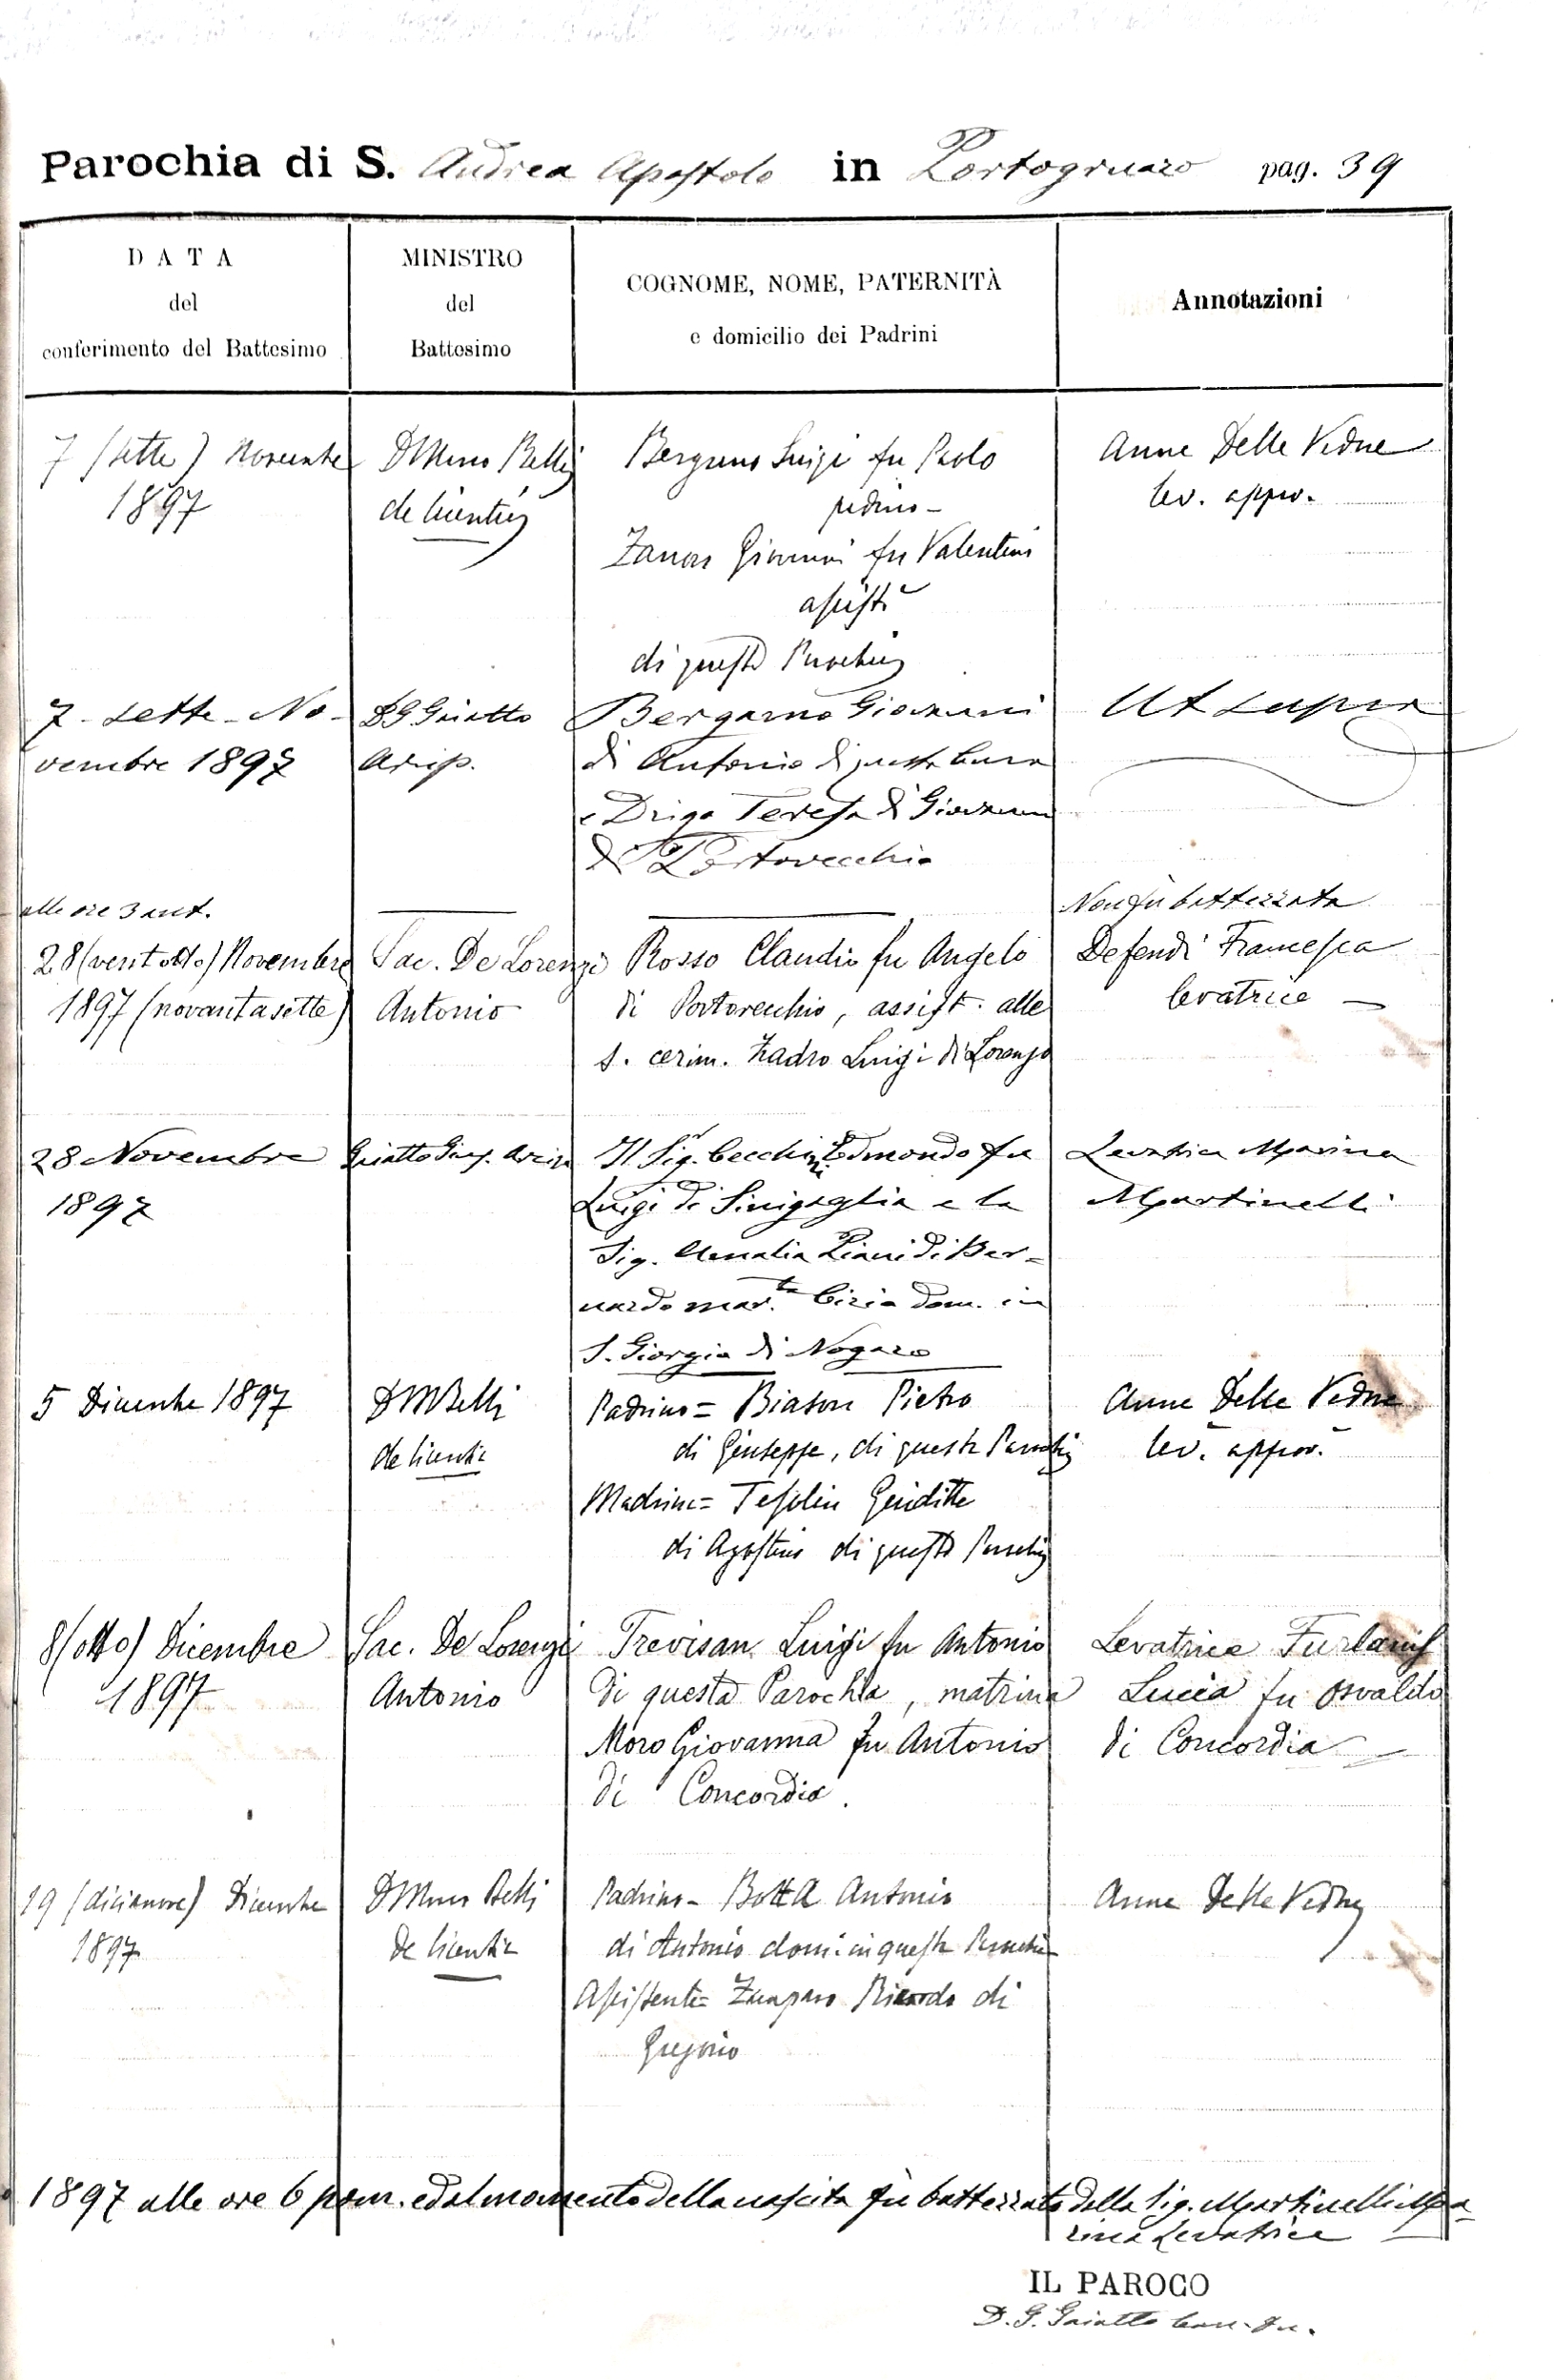 Parochia di S. Andrea Apostolo in Portogruaro pag. 39
DATA
del
conferimento del Battesimo
MINISTRO
del
Battesimo
COGNOME, NOME, PATERNITÀ
e domicilio dei Padrini
Annotazioni
7 (sette) Novembre
1897
Belli
de licentia
Luigi fu Paolo
padrino -
Giovanni fu Valentino
di questa Parochia
Anna Delle Vedove
lev. appro.
7 - sette - No-
vembre 1897
DG Gaiatto
Arcip.
Bergamo Giovanni
di Antonio di questa Cura
e Drigo Teresa di Giovanni
di Portovecchio
Ut supra
alle ore 3 ant.
28 (ventotto) Novembre
1897 (novantasette)
Sac. De Lorenzi
Antonio
Rosso Claudio fu Angelo
di Portovecchio, assist. alle
s. cerim. Zadro Luigi di Lorenzo
Non fu battezzata
Defendi Francesca
levatrice
28 Novembre
1897
Gaiatto Giu. Arcip
Il Sig.r Cecchini Edmondo fu
Luigi di Sinigaglia e la
Sig. Amalia Piani di Ber-
nardo mar.ta dom. in
S. Giorgio di Nogaro
Levatrice Marina
Martinelli
5 Dicembre 1897
DM Belli
de licentia
Padrino = Biason Pietro
di Giuseppe, di questa Parochia
Madrina = Tesolin Giuditta
di Agostino di questa Parochia
Anna Delle Vedove
lev. approv.
8 (otto) Dicembre
1897
Sac. De Lorenzi
Antonio
Trevisan Luigi fu Antonio
di questa Parochia, matrina
Moro Giovanna fu Antonio
di Concordia.
Levatrice Furlanis
Lucia fu Osvaldo
di Concordia
19 (dicianove) Dicembre
1897
Belli
de licentia
Padrino - Botta Antonio
di Antonio dom. in questa Parochia
Assistente = Ricardo di
Gregorio
Anna Delle Vedove
1897 alle ore 6 pom. ed al momento della nascita fu battezzato dalla Sig. Martinelli Ma-
rina Levatrice
IL PAROCO
D. G. Gaiatto